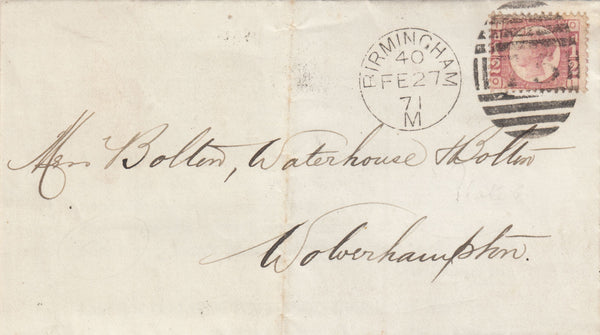 BIRMINGHAM
40
FE27
71
M
Mess Bolton, Waterhouse & Bolton
Wolverhampton.